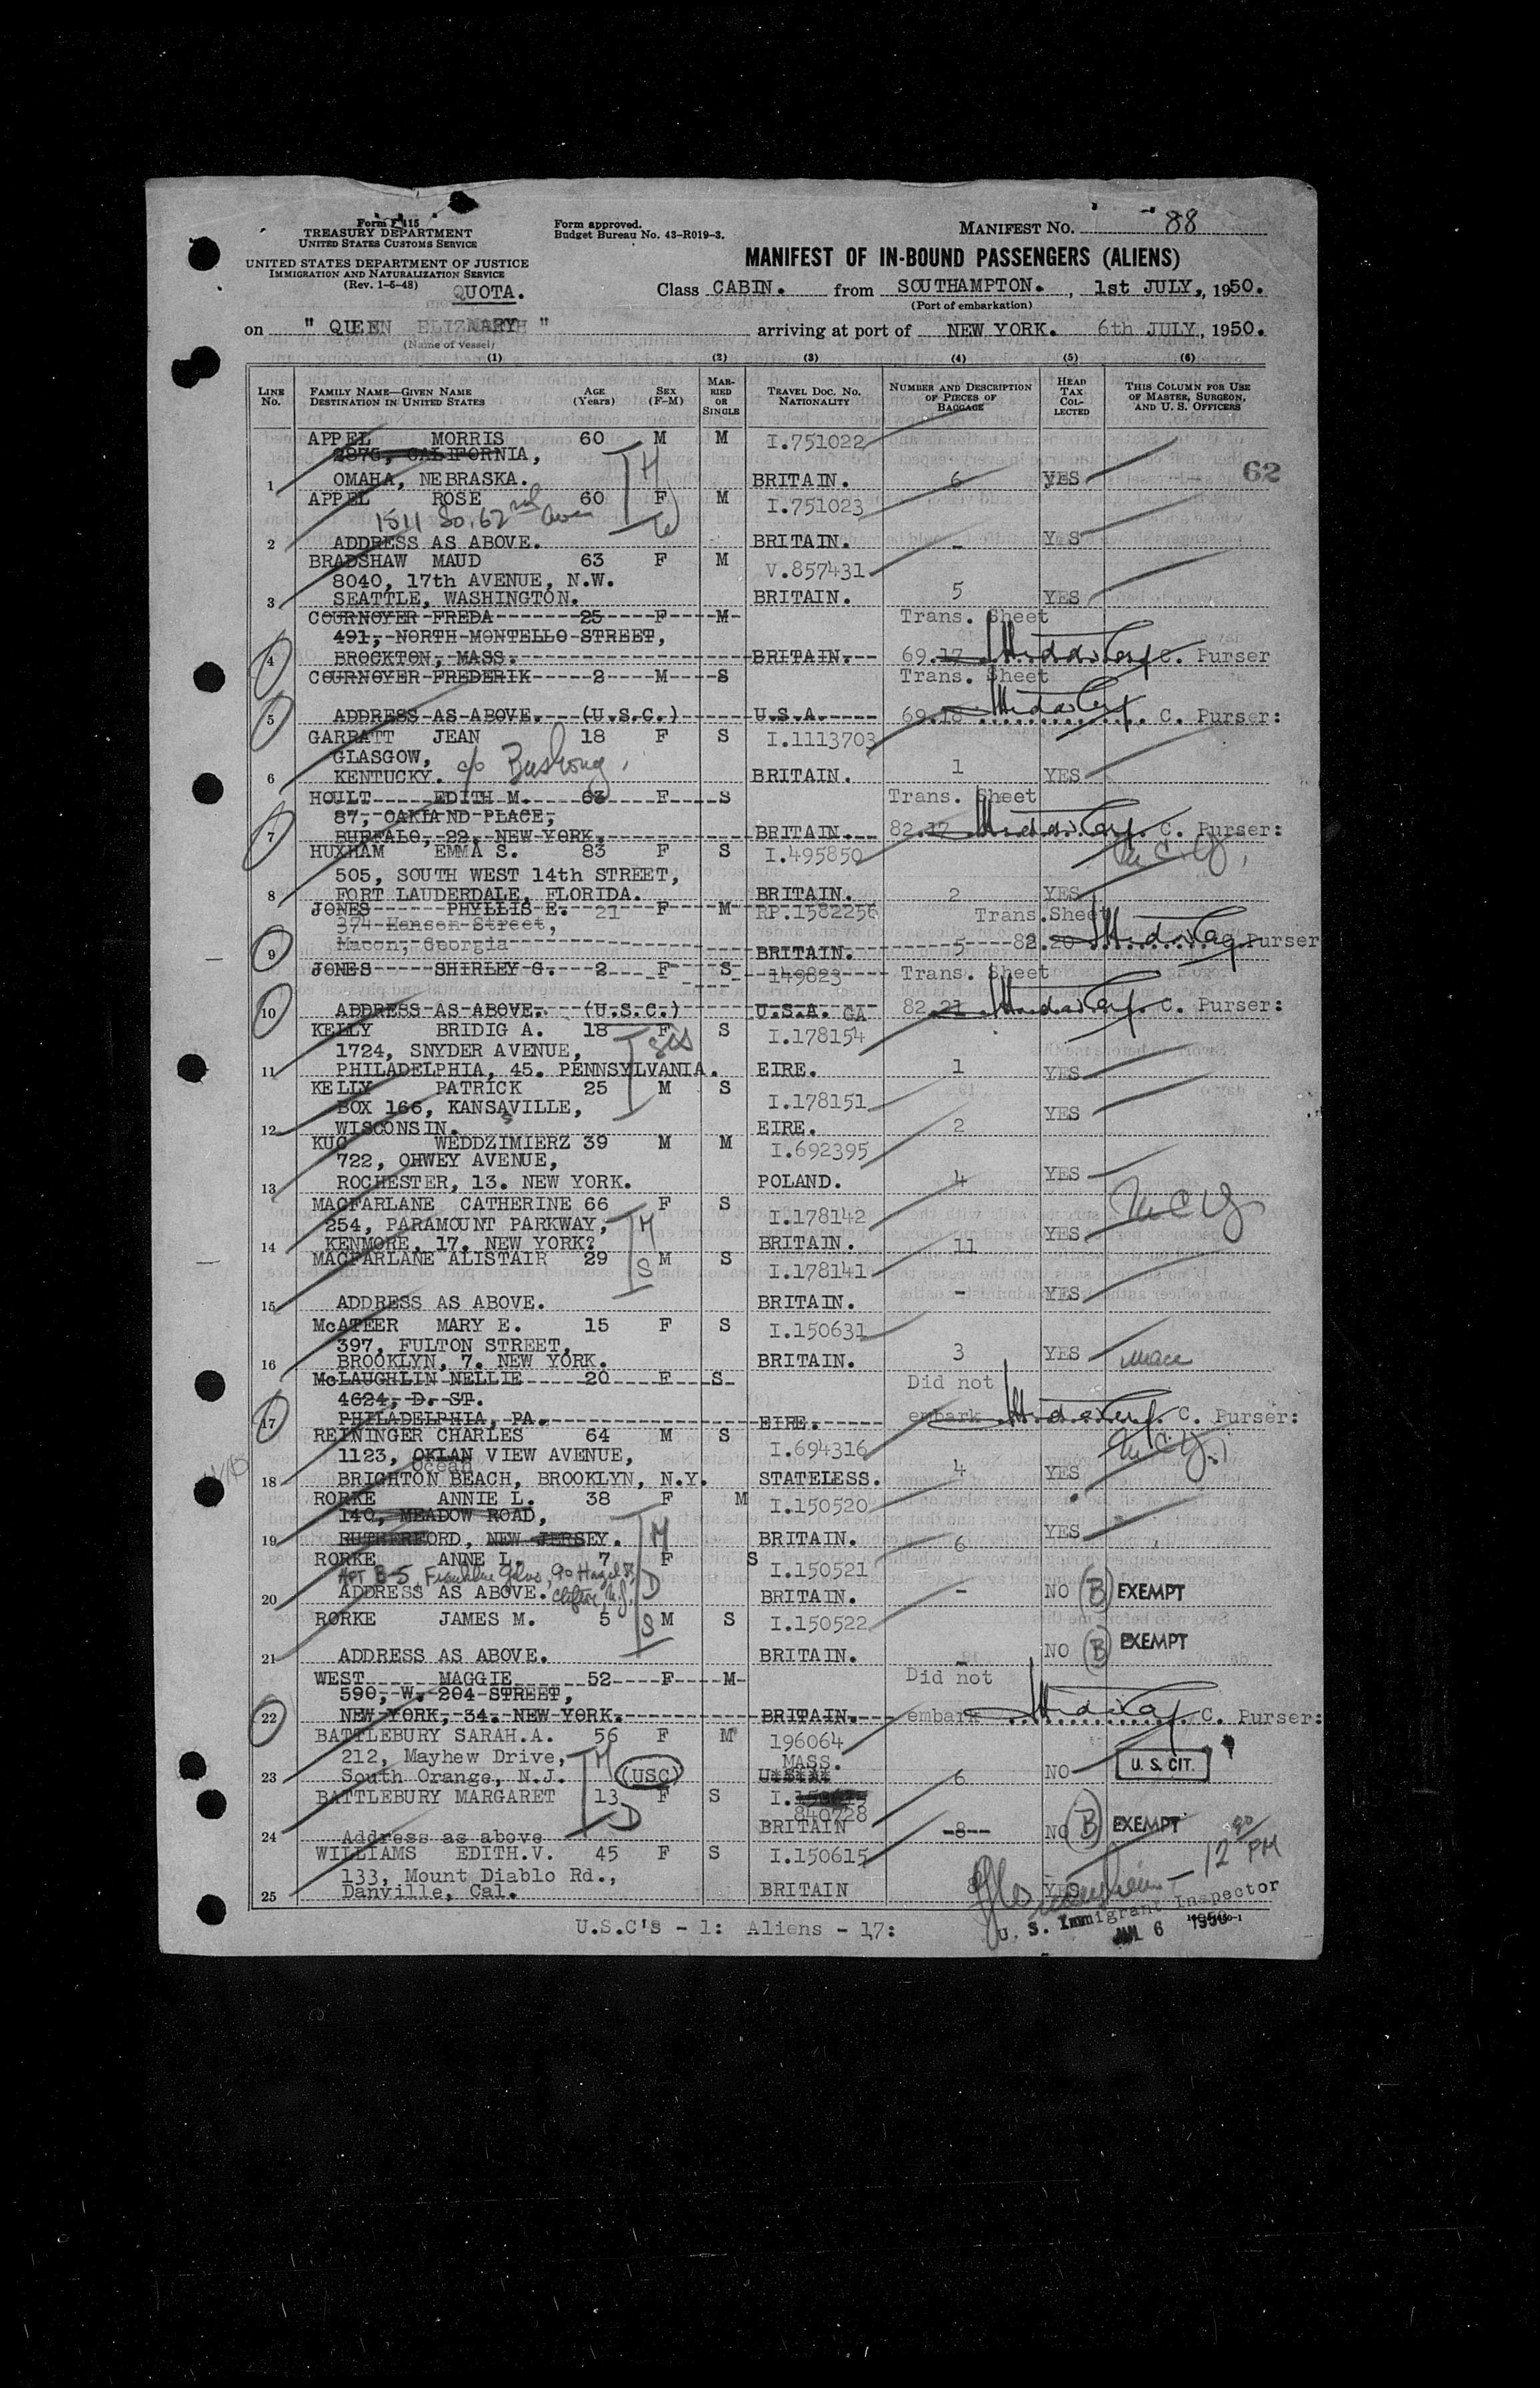 Form I 415
TREASURY DEPARTMENT
UNITED STATES CUSTOMS SERVICE
UNITED STATES DEPARTMENT OF JUSTICE
IMMIGRATION AND NATURALIZATION SERVICE
(Rev. 1-5-48)
QUOTA.
Form approved.
Budget Bureau No. 43-R019-3.
MANIFEST NO. 88
MANIFEST OF IN-BOUND PASSENGERS (ALIENS)
Class CABIN. from SOUTHAMPTON. , 1st JULY, , 1950.
(Port of embarkation)
on " QUEEN MARY " arriving at port of NEW YORK. 6th JULY, 1950.
(Name of vessel)
(1) (2) (3) (4) (5) (6)
LINE No. FAMILY NAME—GIVEN NAME DESTINATION IN UNITED STATES AGE (Years) SEX (F-M) MARRIED OR SINGLE TRAVEL DOC. NO. NATIONALITY NUMBER AND DESCRIPTION OF PIECES OF BAGGAGE HEAD TAX COLLECTED THIS COLUMN FOR USE OF MASTER, SURGEON, AND U. S. OFFICERS
APPEL MORRIS 60 M M I.751022
2876, CALIFORNIA,
1 OMAHA, NEBRASKA. BRITAIN. 6 YES 62
APPEL ROSE 60 F M I.751023
1511 So. 62nd Ave
2 ADDRESS AS ABOVE. BRITAIN. - Y S
BRADSHAW MAUD 63 F M V.857431
8040, 17th AVENUE, N.W.
3 SEATTLE, WASHINGTON. BRITAIN. 5 YES
COURNOYER FREDA 25 F M Trans. Sheet
491, NORTH MONTELLO STREET,
4 BROCKTON, MASS. BRITAIN. 69.17 C. Purser
COURNOYER FREDERIK 2 M S Trans. Sheet
5 ADDRESS AS ABOVE. (U.S.C.) U.S.A. 69.18 C. Purser:
GARRATT JEAN 18 F S I.1113703
GLASGOW,
6 KENTUCKY. c/o Bushong, BRITAIN. 1 YES
HOULT EDITH M. 63 F S Trans. Sheet
87, OAKLAND PLACE,
7 BUFFALO, 22, NEW YORK. BRITAIN. 82.17 C. Purser:
HUXHAM EMMA S. 83 F S I.495850
505, SOUTH WEST 14th STREET,
8 FORT LAUDERDALE, FLORIDA. BRITAIN. 2 YES
JONES PHYLLIS E. 21 F M RP.1582256 Trans.Sheet
374 Hansen Street,
9 Macon, Georgia BRITAIN. 5 82.20 Purser
JONES SHIRLEY G. 2 F S 149823 Trans. Sheet
10 ADDRESS AS ABOVE. (U.S.C.) U.S.A. GA 82.21 C. Purser:
KELLY BRIDIG A. 18 F S I.178154
1724, SNYDER AVENUE,
11 PHILADELPHIA, 45. PENNSYLVANIA. EIRE. 1 YES
KELLY PATRICK 25 M S I.178151
BOX 166, KANSAVILLE, YES
12 WISCONSIN. EIRE. 2
KUC WEDDZIMIERZ 39 M M I.692395
722, OHWEY AVENUE,
13 ROCHESTER, 13. NEW YORK. POLAND. 4 YES
MACFARLANE CATHERINE 66 F S I.178142
254, PARAMOUNT PARKWAY,
14 KENMORE, 17, NEW YORK? BRITAIN. 11 YES
MACFARLANE ALISTAIR 29 M S I.178141
15 ADDRESS AS ABOVE. BRITAIN. - YES
McATEER MARY E. 15 F S I.150631
397, FULTON STREET,
16 BROOKLYN, 7. NEW YORK. BRITAIN. 3 YES
McLAUGHLIN NELLIE 20 F S Did not
4624, D. ST.
17 PHILADELPHIA, PA. EIRE. embark C. Purser:
REININGER CHARLES 64 M S I.694316
1123, OKLAN VIEW AVENUE,
Ocean
18 BRIGHTON BEACH, BROOKLYN, N.Y. STATELESS. 4 YES
RORKE ANNIE L. 38 F M I.150520
140, MEADOW ROAD,
19 RUTHERFORD, NEW JERSEY. BRITAIN. 6 YES
RORKE ANNE L. 7 F S I.150521
APT B-5, Franklin Gdns, 90 Hazel St,
20 ADDRESS AS ABOVE. Clifton, N.J. BRITAIN. - NO B EXEMPT
RORKE JAMES M. 5 M S I.150522
21 ADDRESS AS ABOVE. BRITAIN. - NO B EXEMPT
WEST MAGGIE 52 F M Did not
590, W. 204 STREET,
22 NEW YORK, 34. NEW YORK. BRITAIN. embark C. Purser:
BATTLEBURY SARAH.A. 56 F M 196064
212, Mayhew Drive, MASS.
23 South Orange, N.J. (USC) 6 NO U. S. CIT.
BATTLEBURY MARGARET 13 F S I.
840728
24 Address as above BRITAIN -8-- NO B EXEMPT
WILLIAMS EDITH.V. 45 F S I.150615
133, Mount Diablo Rd.,
25 Danville, Cal. BRITAIN YES
12 PM
U. S. Immigrant Inspector
6 1950
U.S.C'S - 1: Aliens - 17: